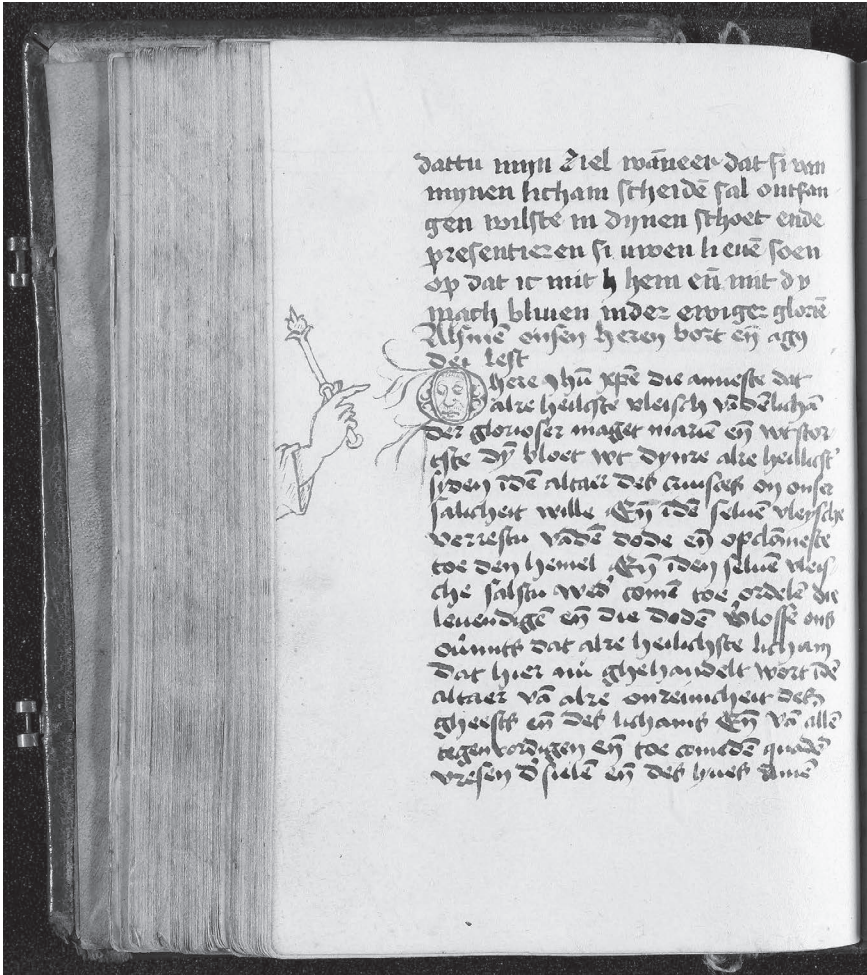 dattu mijn ziel wāneer dat si van
mynen licham scheidē sal ontfan
gen wilste in dynen schoet ende
presentieren si uwen lieuē soen
op dat ic mit h hem eñ mit dy
mach bliuen inder ewiger gloriē
Alsmē onsen heren bort eñ agn
dei lest
O here ihū xpē die anneste dat
alre heilichste vleisch
der glorioser maget mariē eñ wtstor
tste dȳ bloet wt dynre alre heilicst
syden īdē altaer des cruuces om onser
salicheit wille Eñ īdē seluē vleysche
verrestu vādē dode eñ opclōmeste
toe den hemel Eñ īden seluē vleis
che salstu wed' comē toe ordelē die
leuendigē eñ die dodē v'losse ons
ou'mits dat alre heilichste licham
dat hier nu ghehandelt wort īdē
altaer vā alre onreinicheit des
gheests eñ des lichams Eñ vā allē
tegenwordigen eñ toe comēdē quadē
vresen d' sielē eñ des liues Amē